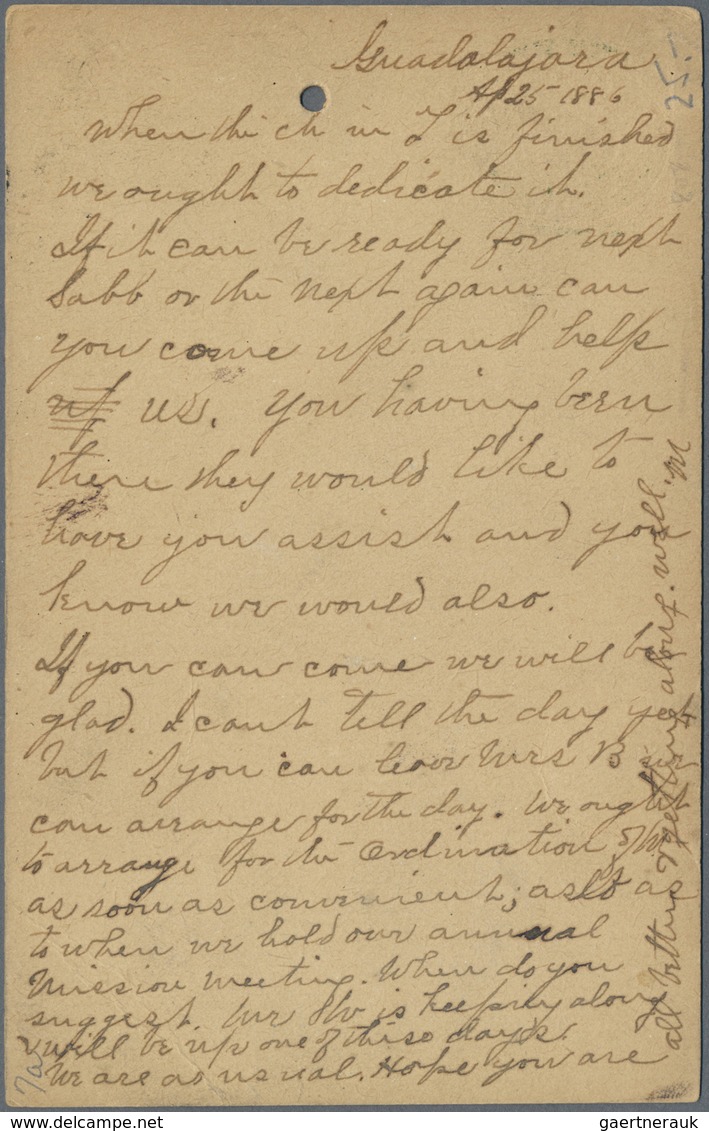 Guadalajara
Ap 25 1886
25.-
When the ch in T is finished
we ought to dedicate it.
If it can be ready for next
Sabb or the next again can
you come up and help
us. You having been
there they would like to
have you assist and you
know we would also.
If you can come we will be
glad. I cant tell the day yet
but if you can leave Mrs B we
can arrange for the day. We ought
to arrange for the Ordination of
as soon as convenient; also as
to when we hold our annual
Mission meeting. When do you
suggest. Mr is keeping along
will be up one of these days.
We are as usual. Hope you are
all better & getting along well.
7a
gaertnerauk